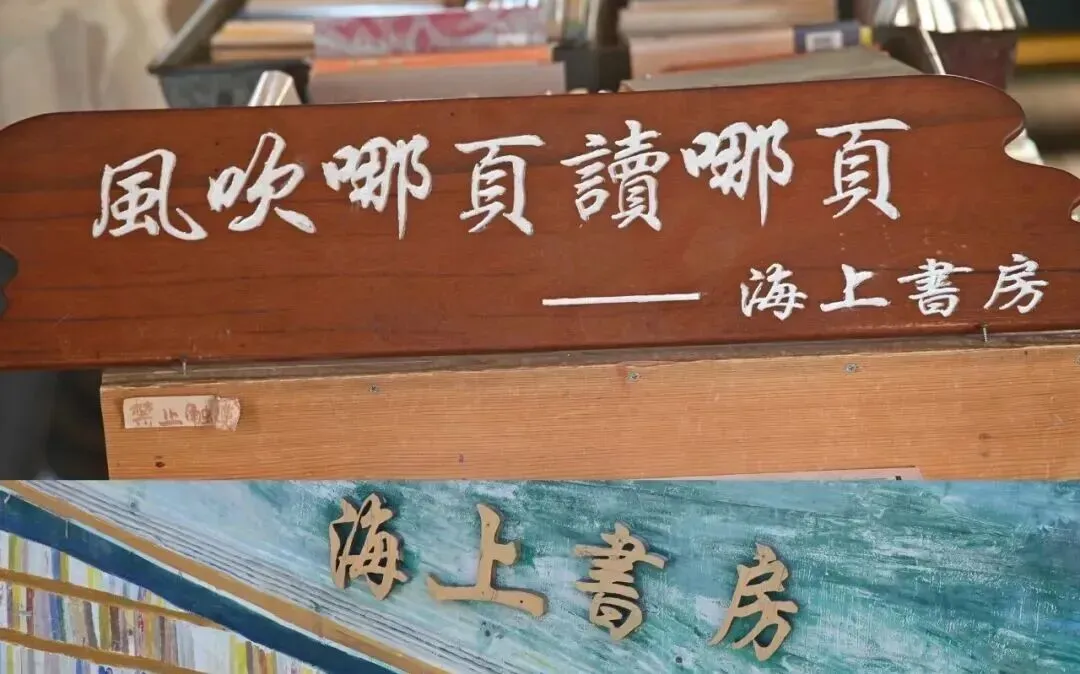 風吹哪頁讀哪頁
——海上書房
禁止
海上書房